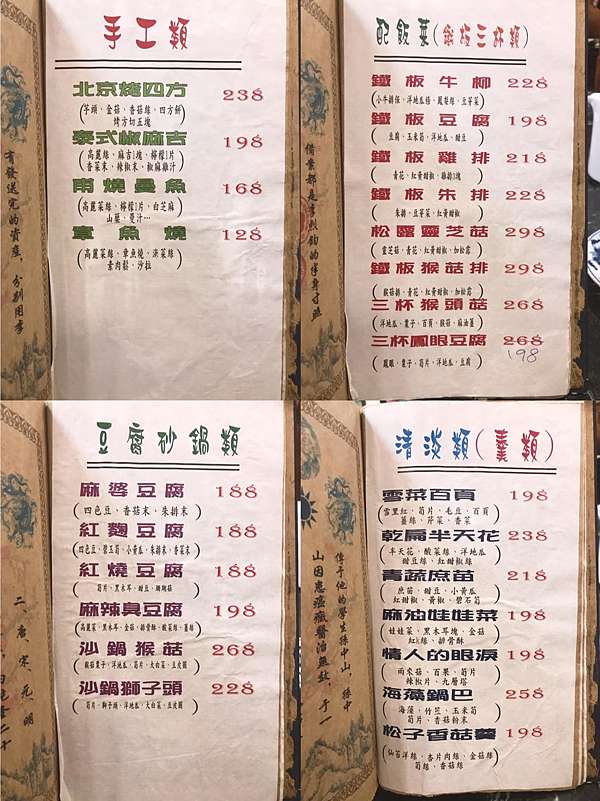 手工類
北京烤四方 238
(芋頭、金菇、香菇絲、四方餅
烤方切五塊)
泰式椒麻吉 198
(高麗絲、麻吉1塊、檸檬1片
香菜末、辣椒末、椒麻雞汁)
南燒曼魚 168
(高麗菜絲、檸檬1片、白芝麻
山葵、蔓汁…)
章魚燒 128
(高麗菜絲、章魚燒、淡菜絲
素肉鬆、沙拉)
有發送完的資產，分別用孝
配飯菜(鐵板三杯類)
鐵板牛柳 228
鐵板豆腐 198
(豆腐、玉米筍、洋地瓜、甜豆)
鐵板雞排 218
(青花、紅黃甜椒、雞排1塊)
鐵板朱排 228
(朱排、豆芽菜、紅黃甜椒)
松露靈芝菇 298
(靈芝菇、青花、紅黃甜椒、加松露)
鐵板猴菇排 298
(猴菇排、青花、紅黃甜椒、加松露)
三杯猴頭菇 268
(洋地瓜、栗子、百頁、猴菇、麻油薑)
三杯鳳眼豆腐 268
198
(鳳眼、栗子、筍片、洋地瓜、豆腐)
豆腐砂鍋類
麻婆豆腐 188
(四色豆、香菇末、朱排末)
紅麴豆腐 188
(四色豆、碧玉筍、小黃瓜、朱排末、香菜末)
紅燒豆腐 188
(筍片、黑木耳、甜豆、珊瑚菇)
麻辣臭豆腐 198
沙鍋猴菇 268
(猴菇栗子、洋地瓜、筍片、大白菜、豆皮圓)
沙鍋獅子頭 228
(筍片、獅子頭、洋地瓜、大白菜、豆皮圓)
二、唐宋元明
清淡類(羹類)
雪菜百頁 198
(雪里紅、筍片、毛豆、百頁
薑絲、芹菜、香菜)
乾扁半天花 238
(半天花、酸菜絲、洋地瓜
甜豆絲、紅甜椒絲)
青蔬庶苗 218
(庶苗、甜豆、小黃瓜
紅甜椒、黃椒、碧石筍)
麻油娃娃菜 198
(娃娃菜、黑木耳塊、金菇
紅k絲、排骨酥)
情人的眼淚 198
(雨來菇、百果、筍片
辣椒片、九層塔)
海藻鍋巴 258
(海藻、竹笙、玉米筍
筍片、香菇粉末)
松子香菇羹 198
(仙苔洋絲、杏片肉絲、金菇絲
筍絲、香菇絲)
傳予他的學生孫中山、孫中
山因患瘟癥醫治無效，于一